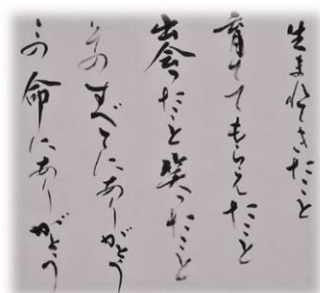 生まれてきたこと
育ててもらえたこと
出会ったこと笑ったこと
そのすべてにありがとう
この命にありがとう